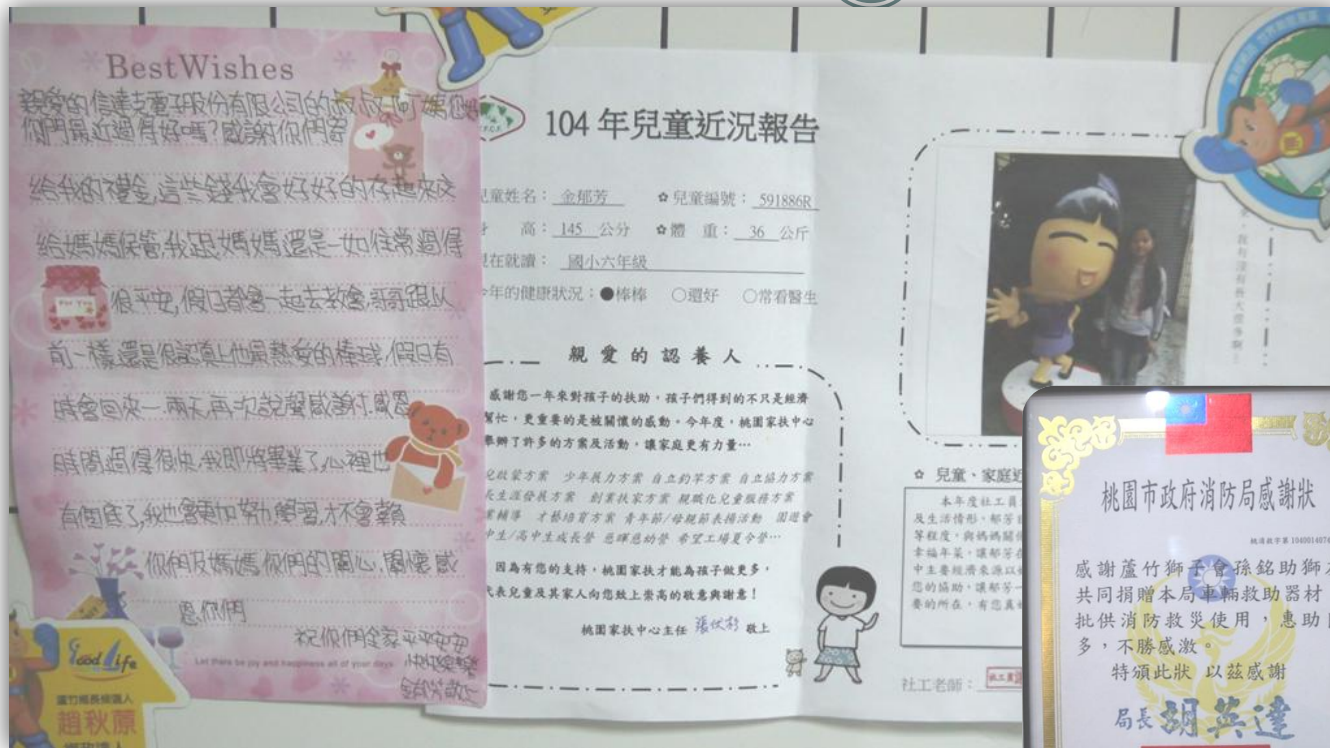 BestWishes
親愛的信達支電子股份有限公司的叔叔、阿姨
你們最近過得好嗎?感謝你們寄
給我的禮金,這些錢我會好好的存起來交
給媽媽保管,我跟媽媽還是一如往常過得
For You
很平安,假日都會一起去教會,哥哥跟以
前一樣還是很認真上他最熱愛的棒球,假日有
時會回來一.兩天再一次說聲感謝
時間過得很快,我即將畢業了,心裡也
有個底了,我也會更加努力學習,才不會辜負
你們及媽媽,你們的關心.關懷感
恩你們
祝你們全家平平安安
快快樂樂
Let there be joy and happiness all of your days.
敬上
Good Life
蘆竹鄉長候選人
趙秋蒝
104 年兒童近況報告
兒童姓名: 金郁芳 ✿兒童編號: 591886R
高: 145 公分 ✿體 重: 36 公斤
現在就讀: 國小六年級
今年的健康狀況:●棒棒 ○還好 ○常看醫生
親愛的認養人
感謝您一年來對孩子的扶助,孩子們得到的不只是經濟
幫忙,更重要的是被關懷的感動。今年度,桃園家扶中心
舉辦了許多的方案及活動,讓家庭更有力量…
兒啟蒙方案 少年展力方案 自立釣竿方案 自立協力方案
長生涯發展方案 創業扶家方案 親職化兒童服務方案
業輔導 才藝培育方案 青年節/母親節表揚活動 園遊會
中生/高中生成長營 慈暉恩幼營 希望工場夏令營…
因為有您的支持,桃園家扶才能為孩子做更多,
代表兒童及其家人向您致上崇高的敬意與謝意!
桃園家扶中心主任 敬上
我有沒有長大很多啊!
✿ 兒童、家庭近
本年度社工員
及生活情形,郁芳
等程度,與媽媽關係
幸福年菜,讓郁芳在
中主要經濟來源以
您的協助,讓郁芳一
要的所在,有您真
社工老師:
桃園市政府消防局感謝狀
感謝蘆竹獅子會孫銘助獅友
共同捐贈本局車輛救助器材
批供消防救災使用,惠助
多,不勝感激。
特頒此狀 以茲感謝
局長 胡英達